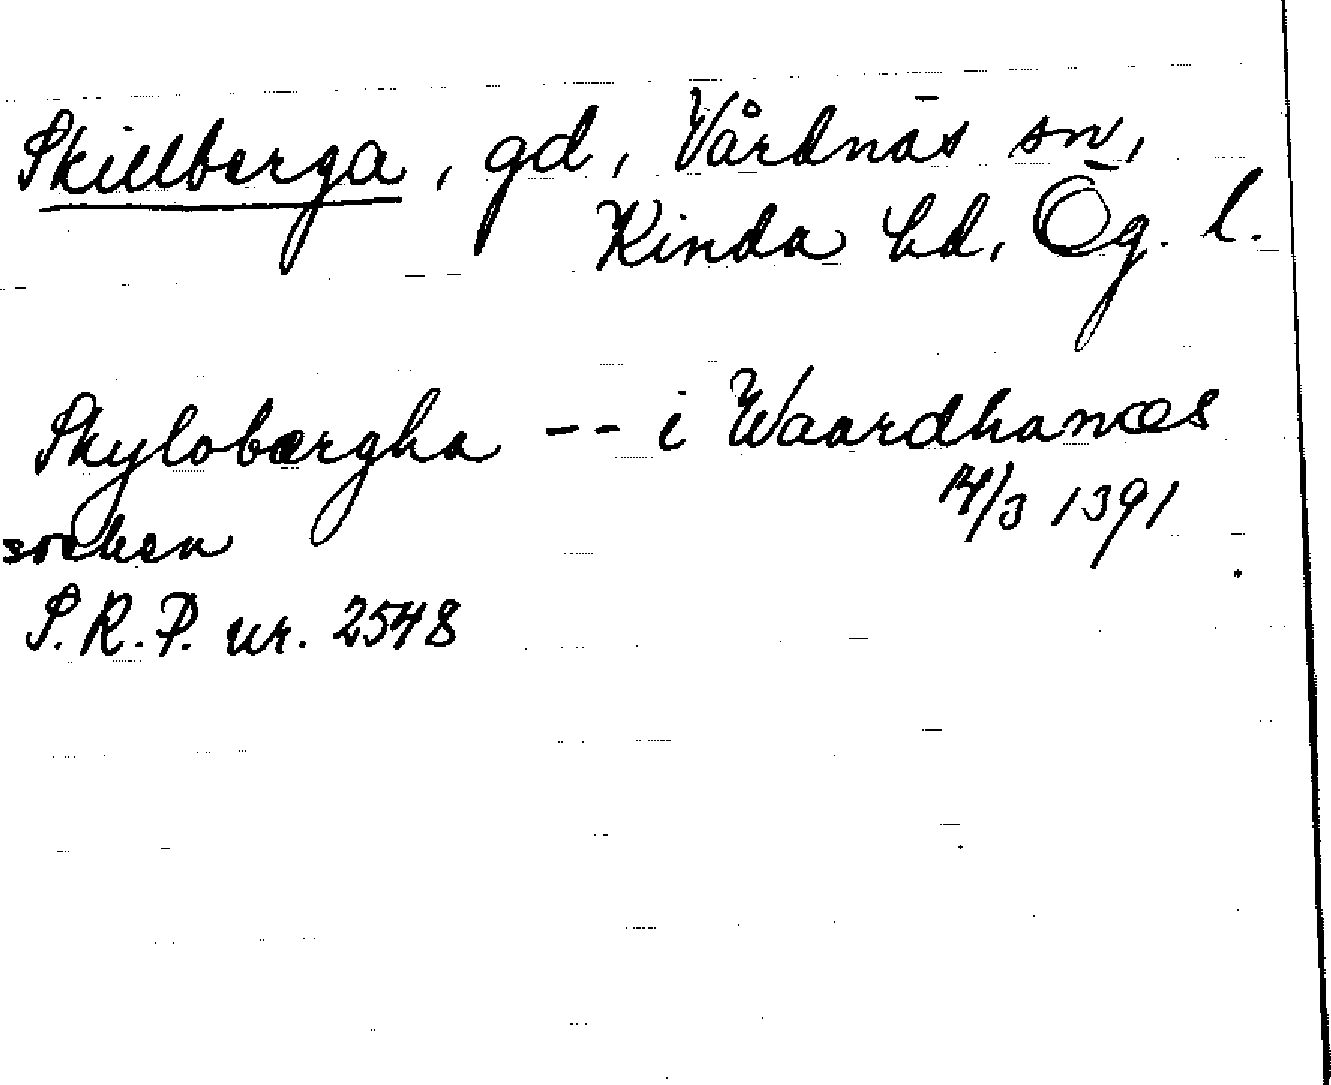 Skillberga, gd, Vårdnäs sn,
Kinda hd, Ög. l.
Skylobærgha -- i Waardhanæs
14/3 1391
socken
S.R.P. nr. 2548